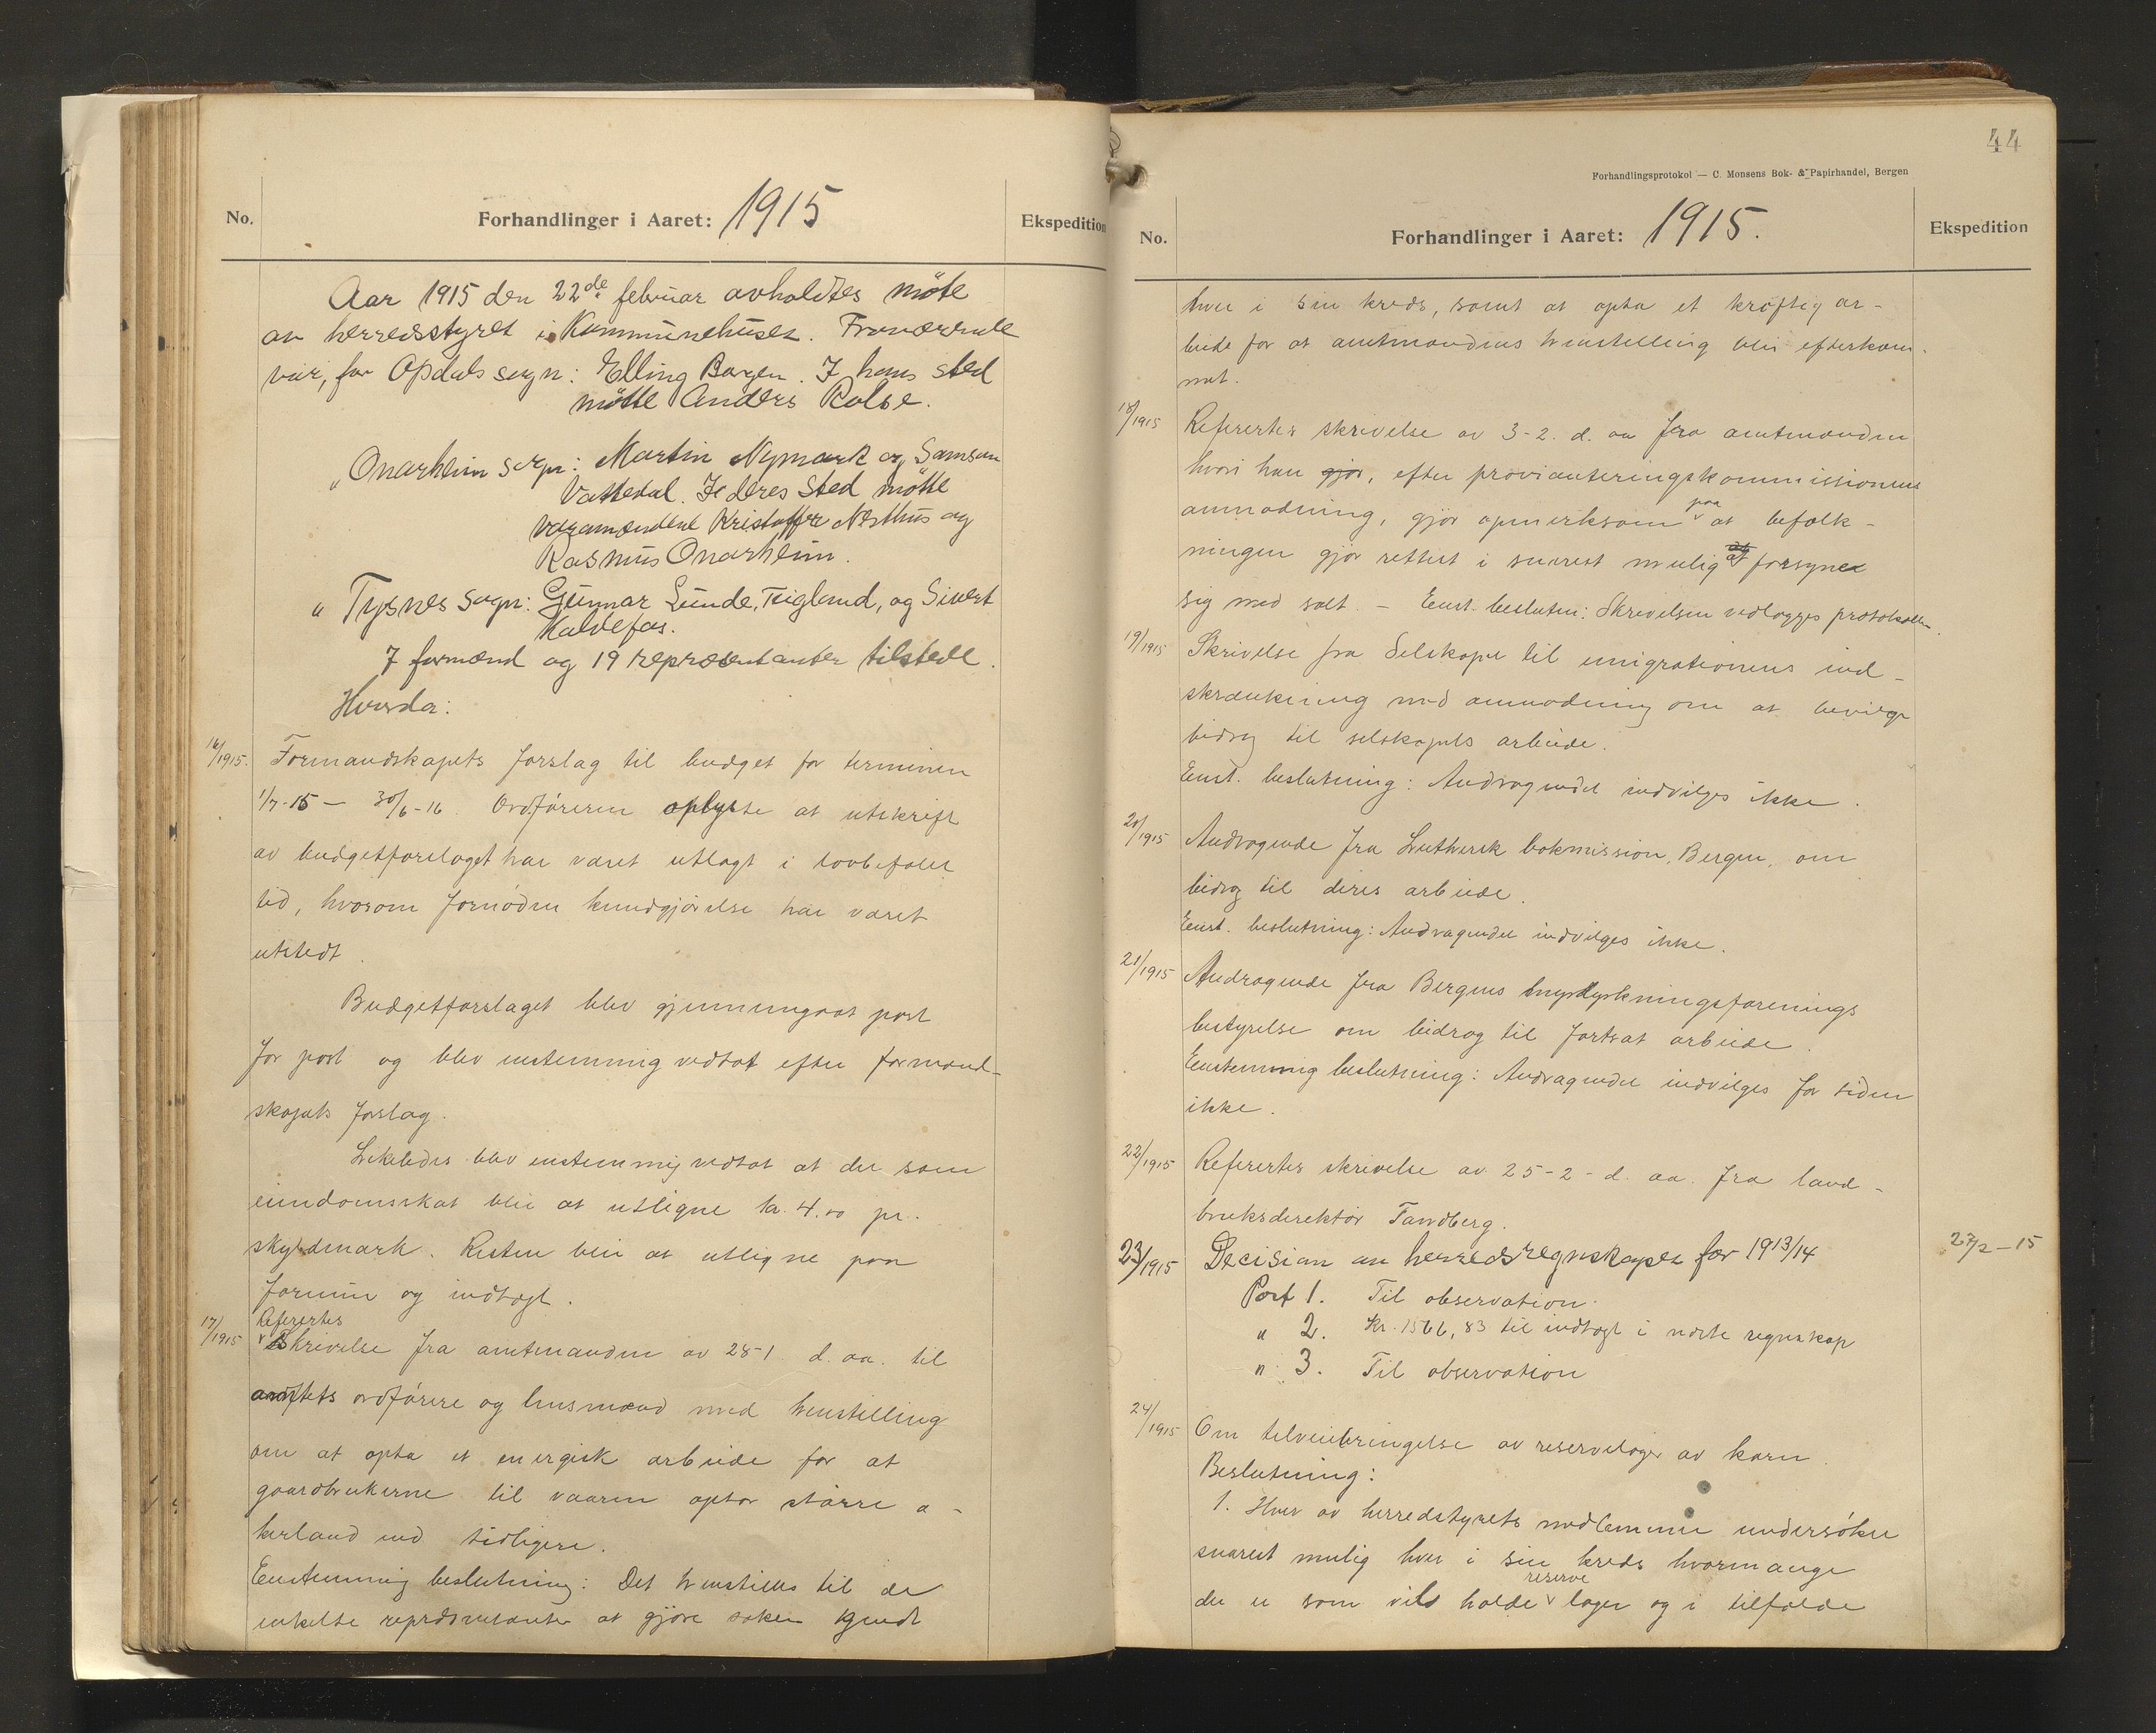 No.
Forhandlinger i Aaret: 1915
Ekspedition
Aar 1915 den 22de februar avholdtes möte
av herredsstyret i Kommunehuset. Fraværende
var, for Opdals sogn: Elling Bargen. I hans sted
mötte Anders Rolse.
" Onarheim sogn: Martin Nymark og Samson
Vattedal. I deres sted mötte
varamændene Kristoffer Nesthus og
Rasmus Onarheim.
" Tysnes sogn: Gunnar Lunde, Teigland, og Sivert
Kaldefos.
7 formænd og 19 repræsentanter tilstede.
Hvorda:
16/1915.
Formandskapets forslag til budget for terminen
1/7-15 – 30/6-16. Ordföreren oplyste at utskrift
av budgetforslaget har været utlagt i lovbefalet
tid, hvorom fornöden kundgjörelse har været
utstedt.
Budgetforslaget blev gjennemgaat post
for post og blev enstemmig vedtat efter formand-
skapets forslag.
Likeledes blev enstemmig vedtat at der som
eiendomsskat blir at utligne kr. 4.00 pr.
skyldmark. Resten blir at utligne paa
formue og indtægt.
17/1915
Refereertes
Skrivelse fra amtmanden av 28-1 d. aa. til
amtets ordförere og lensmænd med henstilling
om at opta et energisk arbeide for at
gaardbrukerne til vaaren optar större a-
kerland end tidligere.
Enstemmig beslutning: Det henstilles til de
enkelte repræsentanter at gjöre saken kjendt
44
Forhandlingsprotokol — C. Monsens Bok- & Papirhandel, Bergen
No.
Forhandlinger i Aaret: 1915.
Ekspedition
hver i sin kreds, samt at opta et kraftig ar-
beide for at amtmandens henstilling blir efterkom-
met.
18/1915
Referertes skrivelse av 3-2. d. aa fra amtmanden
hvori han gjör, efter provianteringskommissionens
anmodning, gjör opmerksom paa at befolk-
ningen gjör rettest i snarest mulig at forsyne
sig med salt. – Enst. besluttn: Skrivelsen vedlægges protokollen.
19/1915
Skrivelse fra Selskapet til emigrationens ind-
skrænkning med anmodning om at bevilge
bidrag til selskapets arbeide.
Enst. beslutning: Andragendet indvilges ikke.
20/1915
Andragende fra Luthersk bokmission, Bergen, om
bidrag til deres arbeide.
Enst. beslutning: Andragendet indvilges ikke.
21/1915
Andragende fra Bergens myrdyrkningsforenings
bestyrelse om bidrag til fortsat arbeide.
Enstemmig beslutning: Andragendet indvilges for tiden
ikke.
22/1915
Referertes skrivelse av 25-2- d. aa. fra land-
bruksdirektör Tandberg.
23/1915
Decision av herredsregnskapet for 1913/14
27/2–15
Post 1. Til observation.
" 2. Kr. 1566,83 til indtægt i næste regnskap
" 3. Til observation
24/1915
Om tilveiebringelse av reservelager av korn.
Beslutning:
1. Hver av herredstyrets medlemmer undersöker
snarest mulig hver i sin kreds hvormange
der er som vil holde reserve lager og i tilfælde